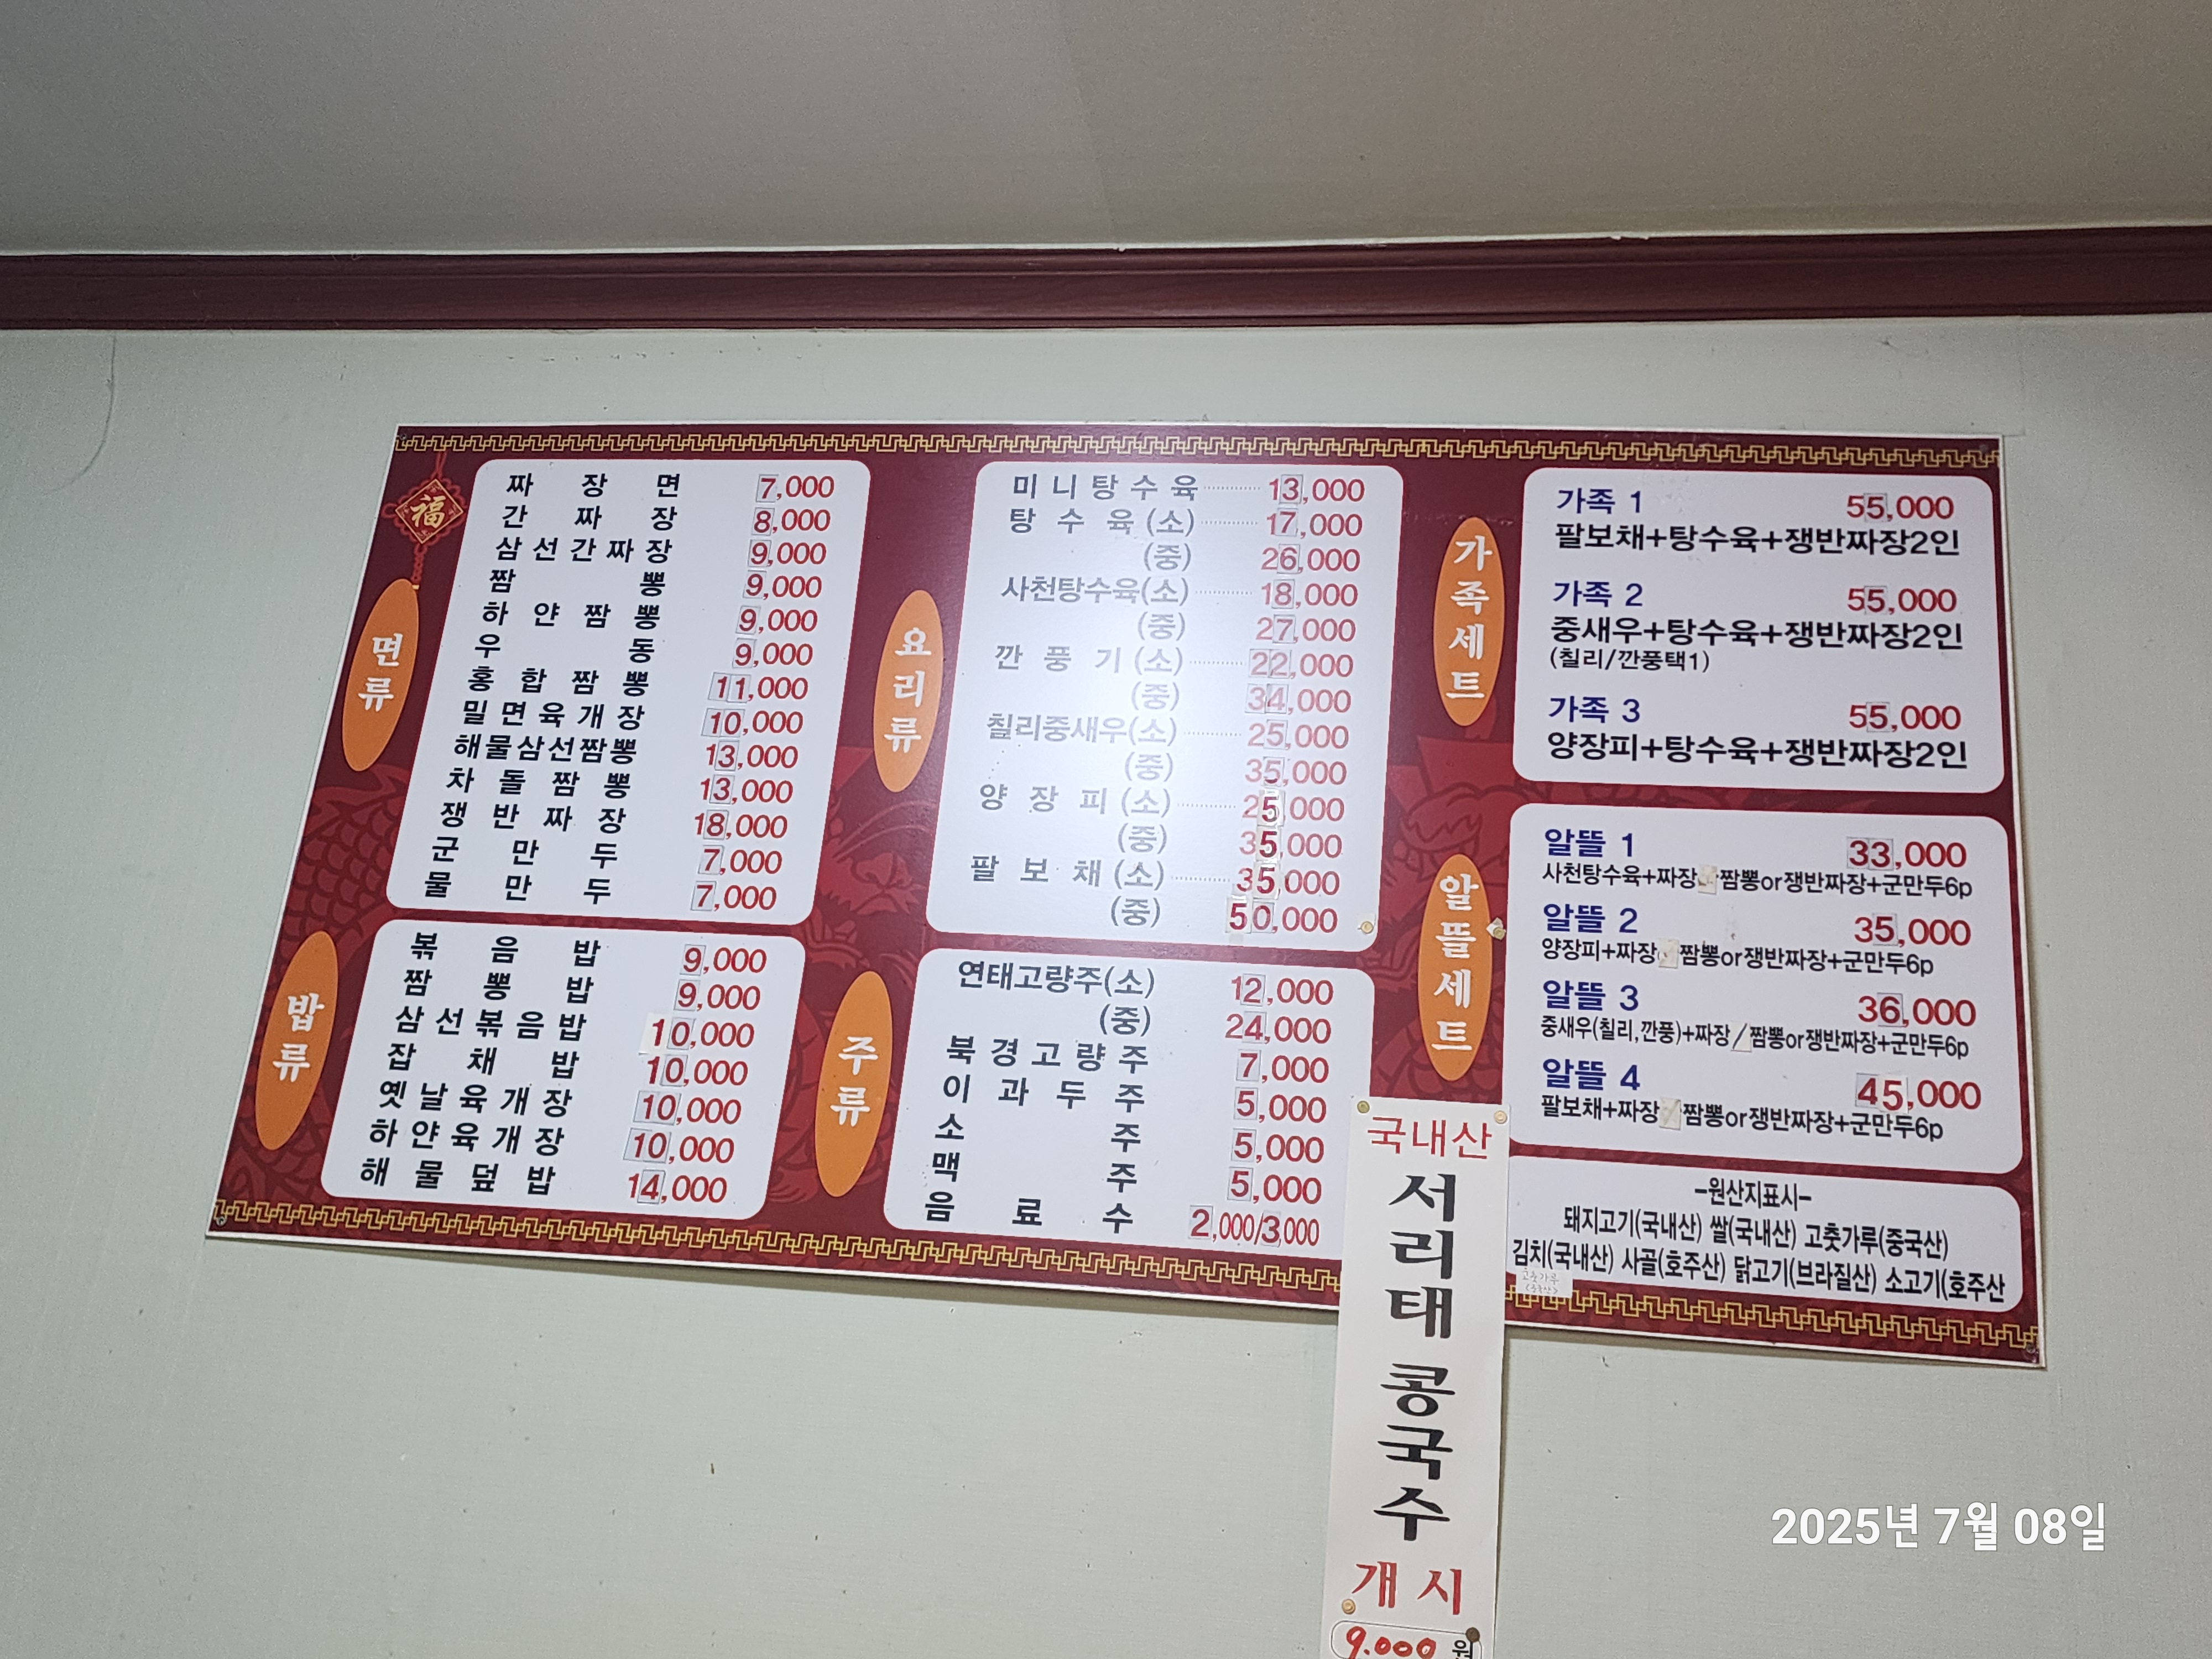 福
면류
짜장면 7,000
간짜장 8,000
삼선간짜장 9,000
짬뽕 9,000
하얀짬뽕 9,000
우동 9,000
홍합짬뽕 11,000
밀면육개장 10,000
해물삼선짬뽕 13,000
차돌짬뽕 13,000
쟁반짜장 18,000
군만두 7,000
물만두 7,000
밥류
볶음밥 9,000
짬뽕밥 9,000
삼선볶음밥 10,000
잡채밥 10,000
옛날육개장 10,000
하얀육개장 10,000
해물덮밥 14,000
요리류
미니탕수육 13,000
탕수육(소) 17,000
(중) 26,000
사천탕수육(소) 18,000
(중) 27,000
깐풍기(소) 22,000
(중) 34,000
칠리중새우(소) 25,000
(중) 35,000
양장피(소) 25,000
(중) 35,000
팔보채(소) 35,000
(중) 50,000
주류
연태고량주(소) 12,000
(중) 24,000
북경고량주 7,000
이과두주 5,000
소주 5,000
맥주 5,000
음료수 2,000/3,000
가족세트
가족 1 55,000
팔보채+탕수육+쟁반짜장2인
가족 2 55,000
중새우+탕수육+쟁반짜장2인
(칠리/깐풍택1)
가족 3 55,000
양장피+탕수육+쟁반짜장2인
알뜰세트
알뜰 1 33,000
사천탕수육+짜장 짬뽕or쟁반짜장+군만두6p
알뜰 2 35,000
양장피+짜장 짬뽕or쟁반짜장+군만두6p
알뜰 3 36,000
중새우(칠리,깐풍)+짜장/짬뽕or쟁반짜장+군만두6p
알뜰 4 45,000
팔보채+짜장/짬뽕or쟁반짜장+군만두6p
-원산지표시-
돼지고기(국내산) 쌀(국내산) 고춧가루(중국산)
김치(국내산) 사골(호주산) 닭고기(브라질산) 소고기(호주산
고춧가루
국내산
서리태 콩국수
개시
9.000 원
2025년 7월 08일